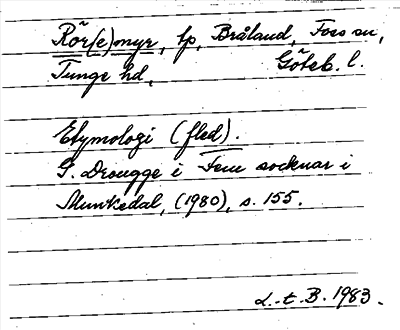 Rör(e)myr, lp, Bråland, Foss sn,
Tunge hd, Göteb. l.
Etymologi (fled).
G. Drougge i Fem socknar i
Munkedal, (1980), s. 155.
L.-t. B. 1983.